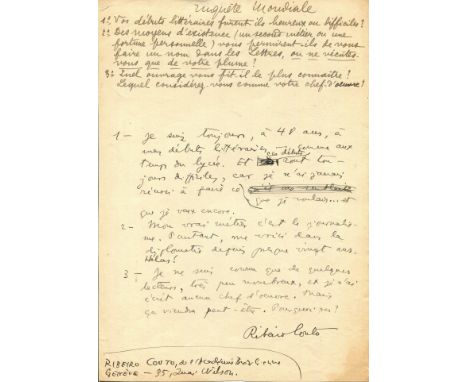 Enquête Mondiale
1º Vos débuts littéraires furent-ils heureux ou difficiles?
2º Des moyens d'existence (un second métier ou une
fortune personnelle) vous permirent-ils de vous
faire un nom dans les Lettres, ou ne vécûtes-
vous que de votre plume?
3º Quel ouvrage vous fit-il le plus connaître?
Lequel considérez-vous comme votre chef-d'œuvre?
1 — Je suis toujours, à 48 ans, à
mes débuts littéraires, comme aux
temps du lycée. Et ces débuts sont tou-
jours difficiles, car je n'ai jamais
réussi à faire ce
que je voulais... et
que je veux encore.
2 — Mon vrai métier c'est le journalis-
me. Pourtant, me voici dans la
diplomatie depuis presque vingt ans.
Hélas!
3 — Je ne suis connu que de quelques
lecteurs, très peu nombreux, et je n'ai
écrit aucun chef d'œuvre. Mais
ça viendra peut-être. Pourquoi pas?
Ribeiro Couto
RIBEIRO COUTO, de l'Académie Brésilienne
GENÈVE — 35, Quai Wilson.